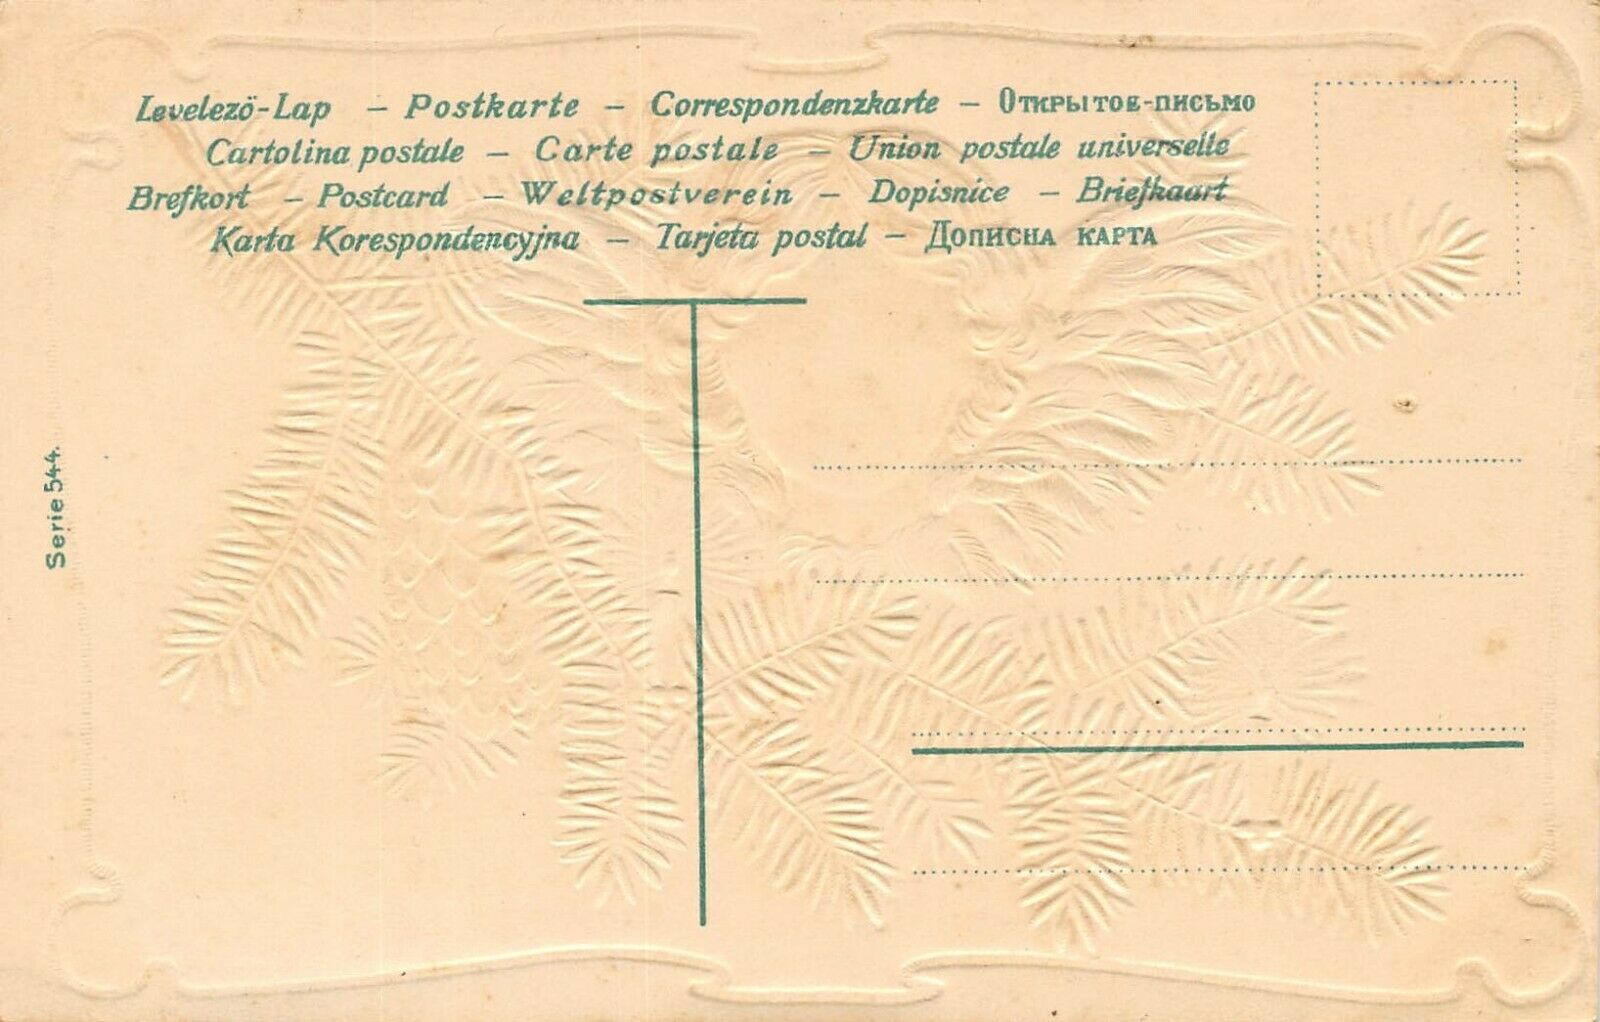 Levelezö-Lap – Postkarte – Correspondenzkarte – Открытое-письмо
Cartolina postale – Carte postale – Union postale universelle
Brefkort – Postcard – Weltpostverein – Dopisnice – Briefkaart
Karta Korespondencyjna – Tarjeta postal – Дописна карта
Serie 544.